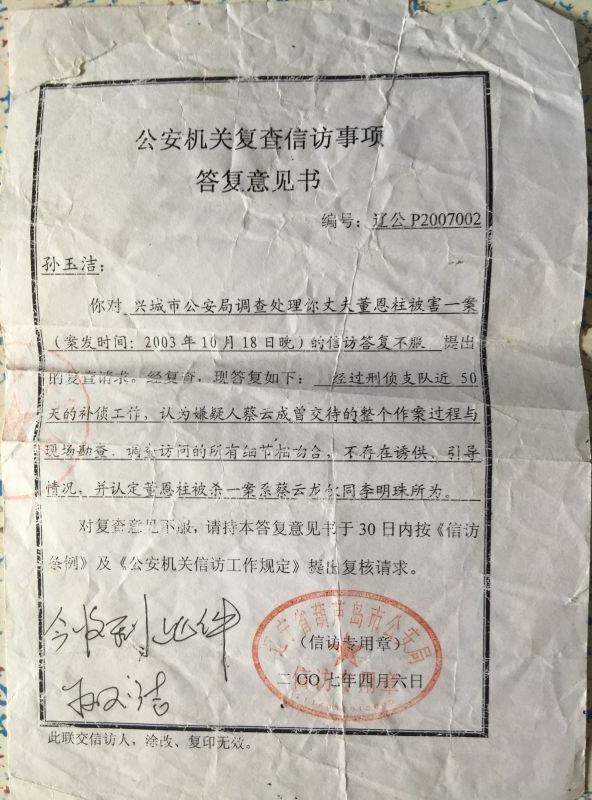 公安机关复查信访事项
答复意见书
编号：辽公P2007002
孙玉洁：
你对 兴城市公安局调查处理你丈夫董恩柱被害一案
（案发时间：2003年10月18日晚）的信访答复不服 提出
的复查请求。经复查，现答复如下： 经过刑侦支队近 50
天的补侦工作，认为嫌疑人蔡云成曾交待的整个作案过程与
现场勘查、调查访问的所有细节相吻合，不存在诱供、引导
情况，并认定董恩柱被杀一案系蔡云龙伙同李明珠所为。
对复查意见不服，请持本答复意见书于30日内按《信访
条例》及《公安机关信访工作规定》提出复核请求。
今收到此件
孙玉洁
辽宁省葫芦岛市公安局
（信访专用章）
信访专用章
二〇〇七年四月六日
此联交信访人，涂改、复印无效。